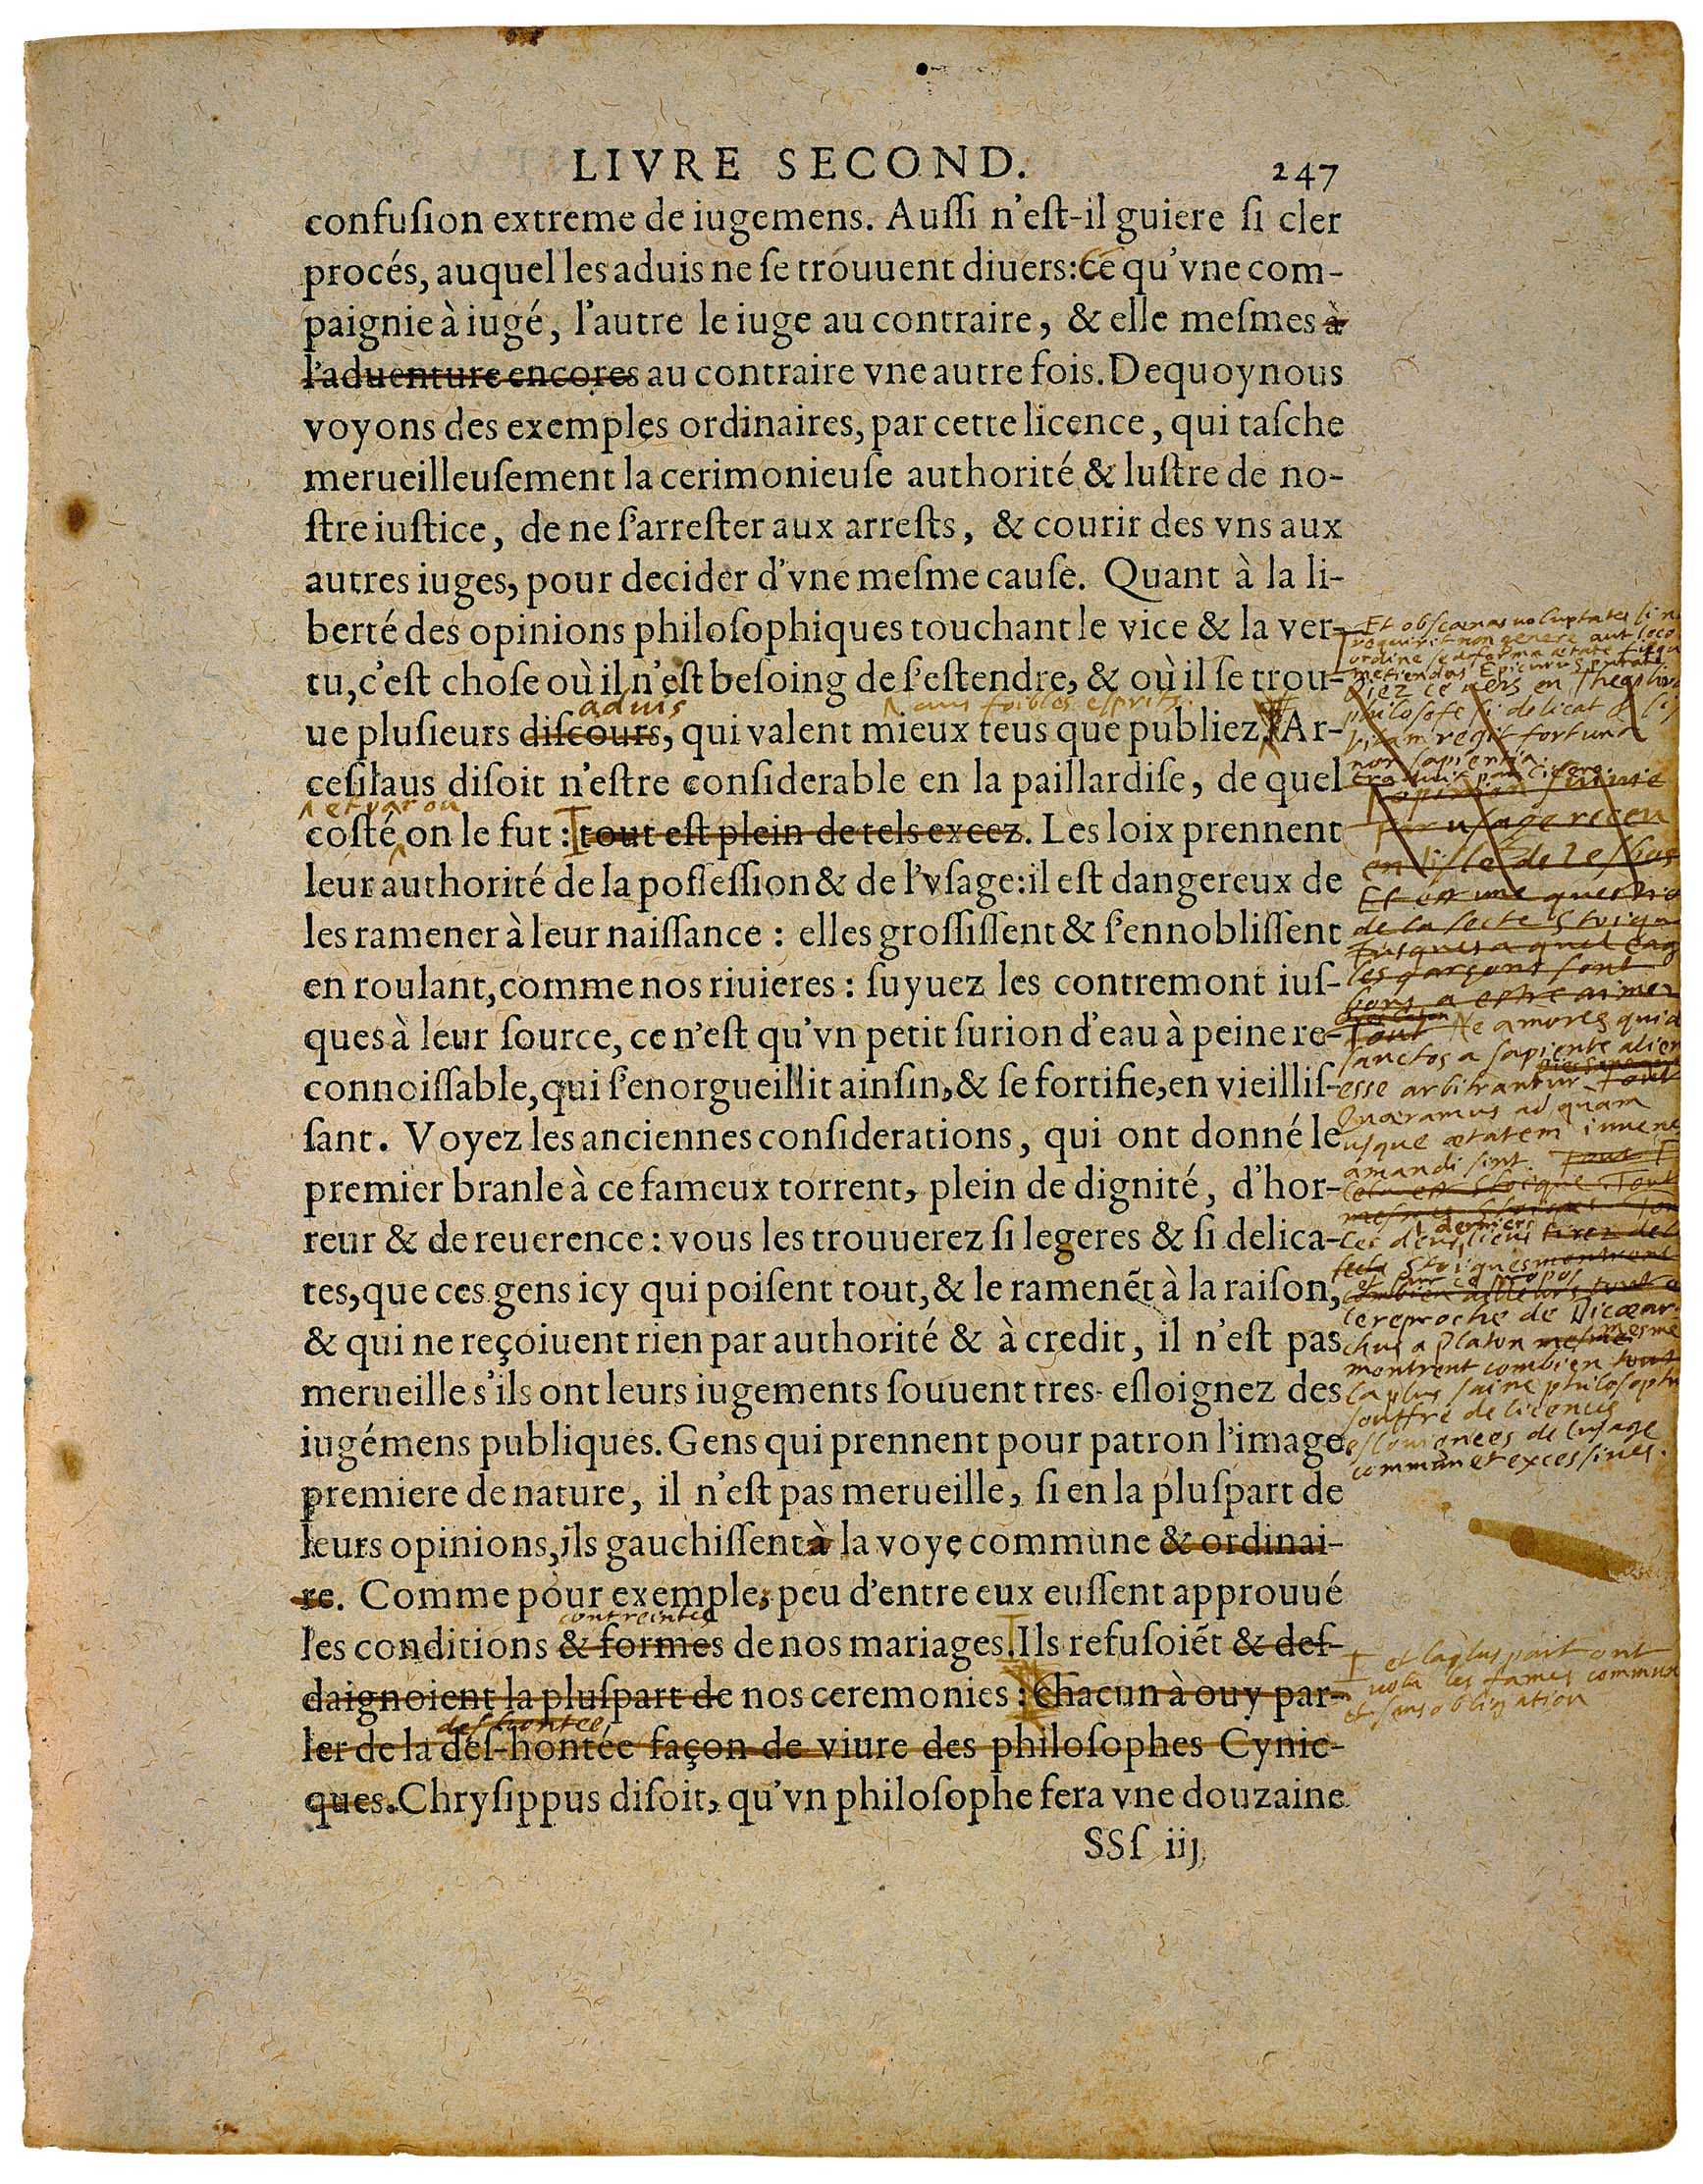 LIVRE SECOND. 247
confuſion extreme de iugemens. Auſſi n'eſt-il guiere ſi cler
procés, auquel les aduis ne ſe trouuent diuers: Ce qu'vne com-
paignie à iugé, l'autre le iuge au contraire, & elle meſmes à
l'aduenture encores au contraire vne autre fois. Dequoy nous
voyons des exemples ordinaires, par cette licence, qui taſche
merueilleuſement la cerimonieuſe authorité & luſtre de no-
ſtre iuſtice, de ne ſ'arreſter aux arreſts, & courir des vns aux
autres iuges, pour decider d'vne meſme cauſe. Quant à la li-
berté des opinions philoſophiques touchant le vice & la ver-
tu, c'eſt choſe où il n'eſt beſoing de ſ'eſtendre, & où il ſe trou-
aduis
aus foibles esprits
ue pluſieurs diſcours, qui valent mieux teus que publiez. Ar-
ceſilaus diſoit n'eſtre conſiderable en la paillardiſe, de quel
et par ou
coſté on le fut: tout eſt plein de tels excez. Les loix prennent
leur authorité de la poſſeſſion & de l'vſage: il eſt dangereux de
les ramener à leur naiſſance : elles groſſiſſent & ſ'ennobliſſent
en roulant, comme nos riuieres : ſuyuez les contremont iuſ-
ques à leur ſource, ce n'eſt qu'vn petit ſurion d'eau à peine re-
connoiſſable, qui ſ'enorgueillit ainſin, & ſe fortifie, en vieilliſ-
ſant. Voyez les anciennes conſiderations, qui ont donné le
premier branle à ce fameux torrent, plein de dignité, d'hor-
reur & de reuerence : vous les trouuerez ſi legeres & ſi delica-
tes, que ces gens icy qui poiſent tout, & le ramenẽt à la raiſon,
& qui ne reçoiuent rien par authorité & à credit, il n'eſt pas
merueille s'ils ont leurs iugements ſouuent tres-eſloignez des
iugémens publiques. Gens qui prennent pour patron l'image
premiere de nature, il n'eſt pas merueille, ſi en la pluſpart de
leurs opinions, ils gauchiſſent à la voye commune & ordinai-
re. Comme pour exemple, peu d'entre eux euſſent approuué
contreintes
les conditions & formes de nos mariages. Ils refuſoiẽt & deſ-
daignoient la pluſpart de nos ceremonies : Chacun à ouy par-
deshontee
ler de la deſ-hontée façon de viure des philoſophes Cynic-
ques. Chryſippus diſoit, qu'vn philoſophe fera vne douzaine
SSſ iij
Et obscœnas uoluptates si n
requirit non genere aut loco
ordine sed forma ætate figu
metiendas Epicurus putat
philosofe si delicat
uitam regit fortuna
non sapientia
par usage
en l'isle de Lesbos
Et est une questio
de la secte Stoique
Iusques a quel eag
les garçons sont
bons a estre aimer
Ne amores quid
sanctos a sapiente alien
esse arbitrantur
Quæramus ad quam
usque ætatem iuuene
amandi sint.
Ces deus derniers lieus
Stoiques
et sur ce propos
le reproche de Dicæar
chus a Platon mesme
montrent combien
la plus saine philosophi
souffre de licences
eslouignees de l'usage
commun et excessiues.
et la plus part ont
uolu les fames commun
et sans obligation